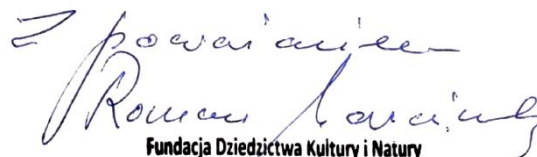 Z poważaniem
Roman
Fundacja Dziedzictwa Kultury i Natury